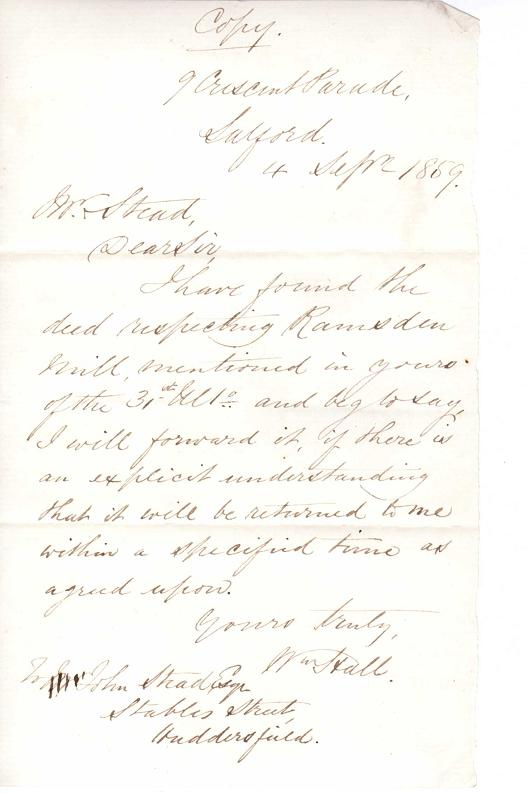 Copy.
9 Crescent Parade,
Salford.
4 Sepr 1869.
Mr. Stead,
Dear Sir,
I have found the
deed respecting Ramsden
Mill, mentioned in yours
of the 31st Ulto and beg to say,
I will forward it, if there is
an explicit understanding
that it will be returned to me
within a specified time as
agreed upon.
Yours truly,
Wm Hall.
To John Stead Esqr
Stables Street,
Huddersfield.